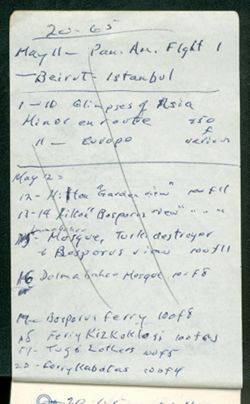 20-65
May 11 - Pan. Am. Flght 1
- Beirut - Istanbul
1-10 Glimpses of Asia
Minor enroute 250
11 - Europe f
various
May 12 =
12 - Hilton "Garden view" 100 f11
13-14 Hilton "Bosporus view" " "
15 - Mosque, Turk. destroyer
& Bosporus view 100 f11
16 Dolmabahce Mosque 100 f8
17 - Bosporus ferry 100 f8
18 Ferry Kizkoklesi
19 - Tugs & others 100 f5
20 - Ferry Kabatas 100 f4